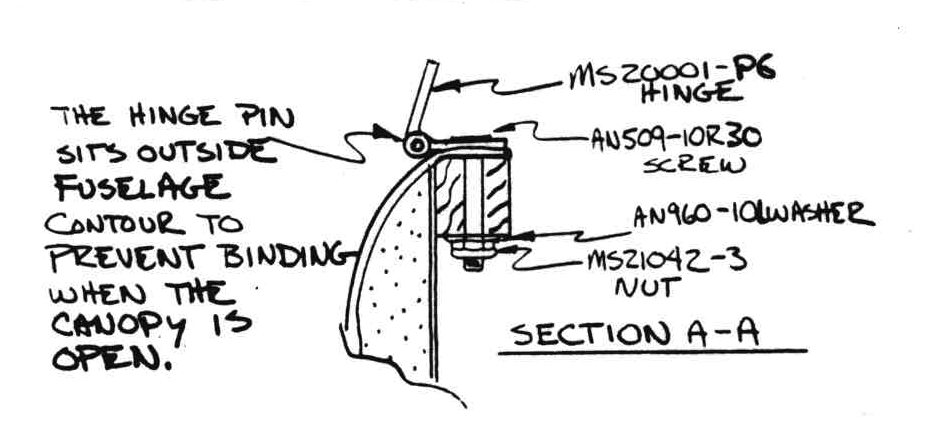 THE HINGE PIN
SITS OUTSIDE
FUSELAGE
CONTOUR TO
PREVENT BINDING
WHEN THE
CANOPY IS
OPEN.
MS20001-P6
HINGE
AN509-10R30
SCREW
AN960-10L WASHER
MS21042-3
NUT
SECTION A-A